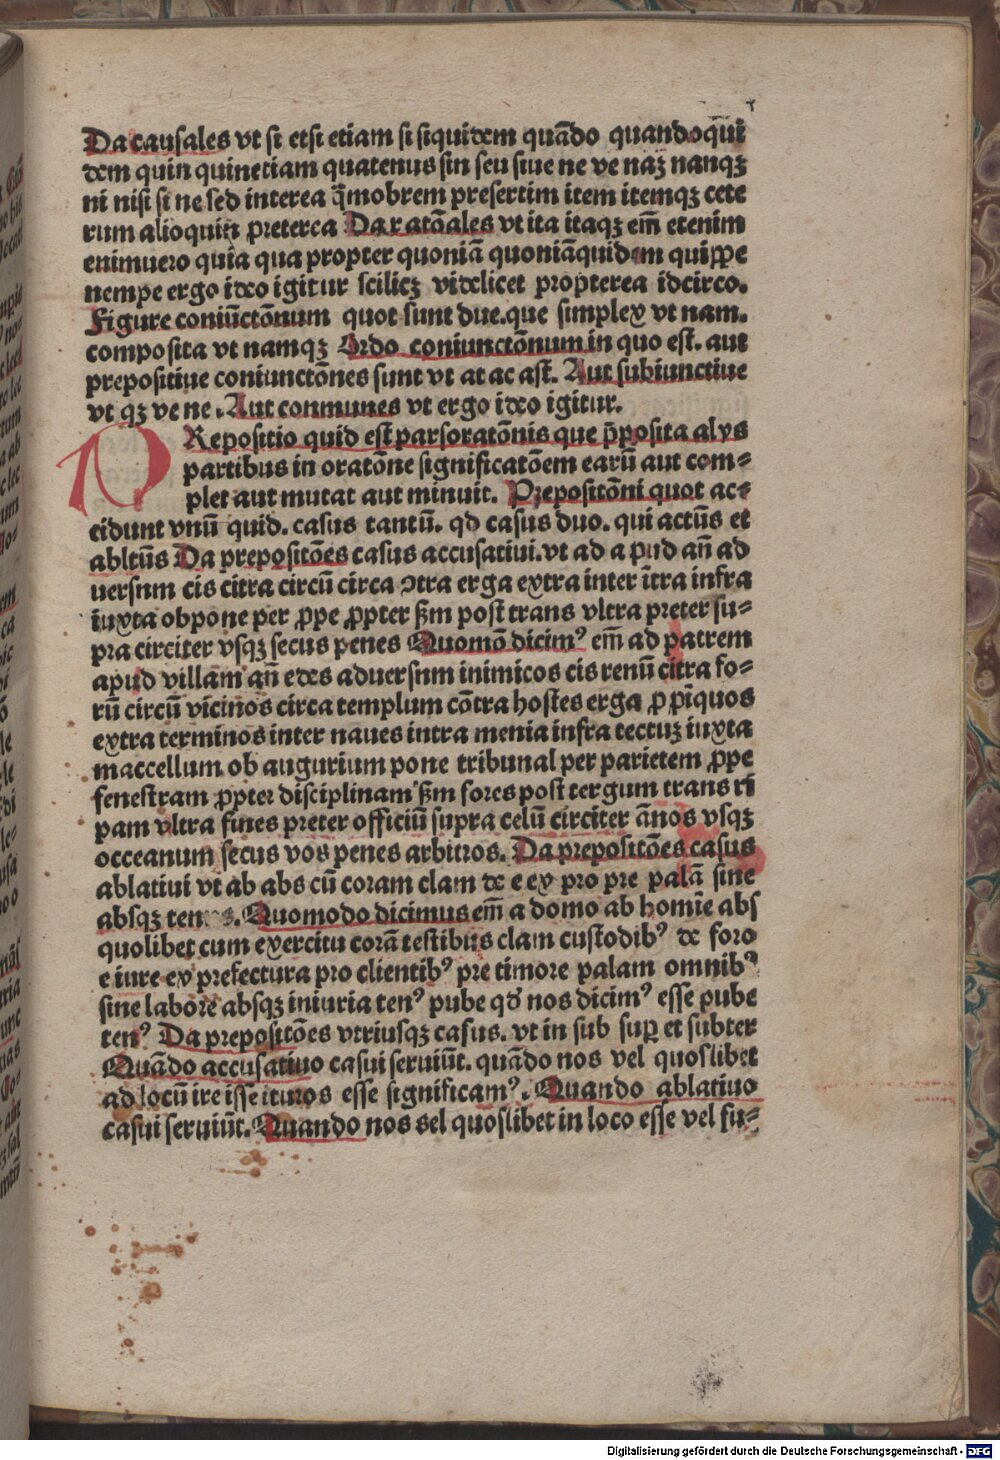 Da causales vt si etsi etiam si siquidem quādo quandoqui
dem quin quinetiam quatenus sin seu siue ne ve naꝫ nanqꝫ
ni nisi si ne sed interea q̄mobrem presertim item itemqꝫ cete
rum alioquin preterea Da ratōales vt ita itaqꝫ em̄ etenim
enimuero quia qua propter quoniā quoniāquidem quippe
nempe ergo ideo igitur scilicꝫ videlicet propterea idcirco.
Figure coniūctōnum quot sunt due.que simplex vt nam.
composita vt namqꝫ Ordo coniunctōnum in quo est. aut
prepositiue coniunctōnes sunt vt at ac ast. Aut subiunctiue
vt qꝫ ve ne. Aut communes vt ergo ideo igitur.
PRepositio quid est pars oratōnis que p̄posita alys
partibus in oratōne significatōem earū aut com⸗
plet aut mutat aut minuit. Prepositōni quot ac⸗
cidunt vnū quid. casus tantū. qd casus duo. qui actūs et
abltūs Da prepositōes casus accusatiui.vt ad apud an̄ ad
uersum cis citra circū circa ꝯtra erga extra inter ītra infra
iuxta ob pone per ꝓpe ꝓpter ßm post trans vltra preter su⸗
pra circiter vsqꝫ secus penes Quomō dicimꝰ em̄ ad patrem
apud villam an̄ edes aduersum inimicos cis renū citra fo⸗
rū circū vicinos circa templum cōtra hostes erga ꝓpīquos
extra terminos inter naues intra menia infra tectuꝫ iuxta
maccellum ob augurium pone tribunal per parietem ꝓpe
fenestram ꝓpter disciplinam ßm fores post tergum trans ri
pam vltra fines preter officiū supra celū circiter ānos vsqꝫ
occeanum secus vos penes arbitros. Da prepositōes casus
ablatiui vt ab abs cū coram clam de e ex pro pre palā sine
absqꝫ Quomodo dicimus em̄ a domo ab homīe abs
quolibet cum exercitu corā testibus clam custodibꝰ de foro
e iure ex prefectura pro clientibꝰ pre timore palam omnibꝰ
sine labore absqꝫ iniuria tenꝰ pube qd' nos dicimꝰ esse pube
tenꝰ Da prepositōes vtriusqꝫ casus. vt in sub suꝑ et subter
Quādo accusatiuo casui seruiūt. quādo nos vel quoslibet
ad locū ire isse ituros esse significamꝰ. Quando ablatiuo
casui seruiūt. Quando nos sel quoslibet in loco esse vel fu⸗
Digitalisierung gefördert durch die Deutsche Forschungsgemeinschaft - DFG